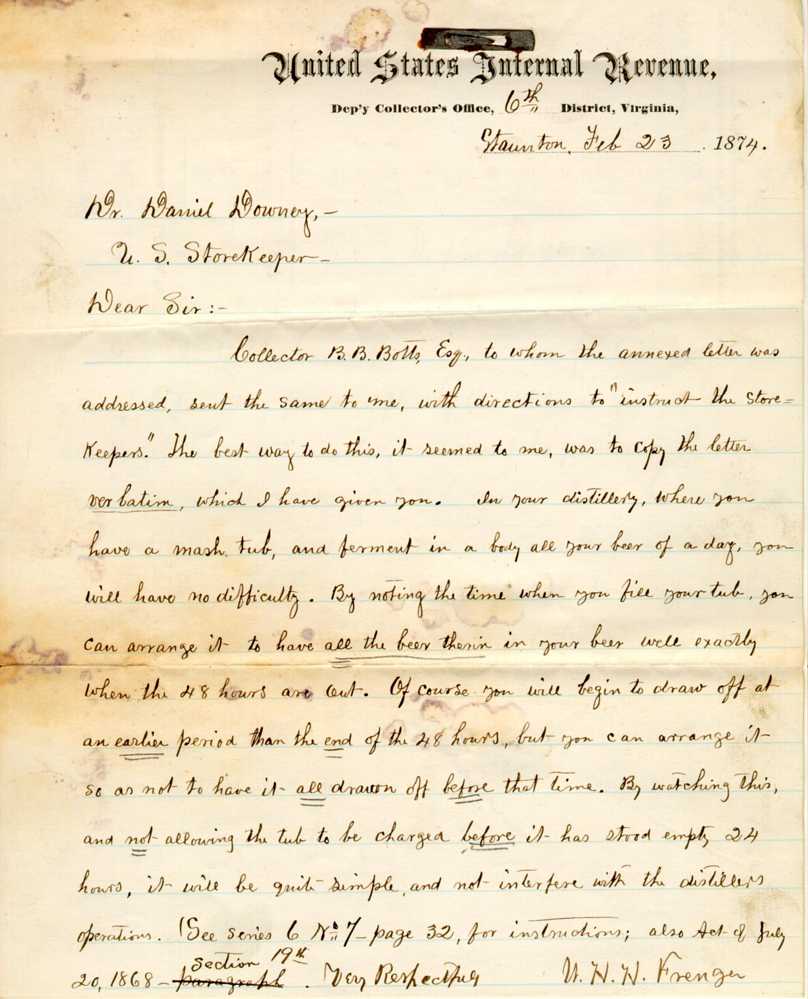 United States Internal Revenue,
Dep'y Collector's Office, 6th District, Virginia,
Staunton, Feb 23 1874.
Dr. Daniel Downey,-
U. S. Storekeeper-
Dear Sir:-
Collector B. B. Botts, Esq., to whom the annexed letter was
addressed, sent the same to me, with directions to "instruct the Store-
Keepers." The best way to do this, it seemed to me, was to copy the letter
verbatim, which I have given you. In your distillery, where you
have a mash tub, and ferment in a body all your beer of a day, you
will have no difficulty. By noting the time when you fill your tub, you
can arrange it to have all the beer therin in your beer well exactly
when the 48 hours are out. Of course you will begin to draw off at
an earlier period than the end of the 48 hours, but you can arrange it
so as not to have it all drawn off before that time. By watching this,
and not allowing the tub to be charged before it has stood empty 24
hours, it will be quite simple, and not interfere with the distillers
operations. (See series 6 No. 7- page 32, for instructions; also Act of July
section 19th
20, 1868- paragraph. Very Respectfully U. H. H.